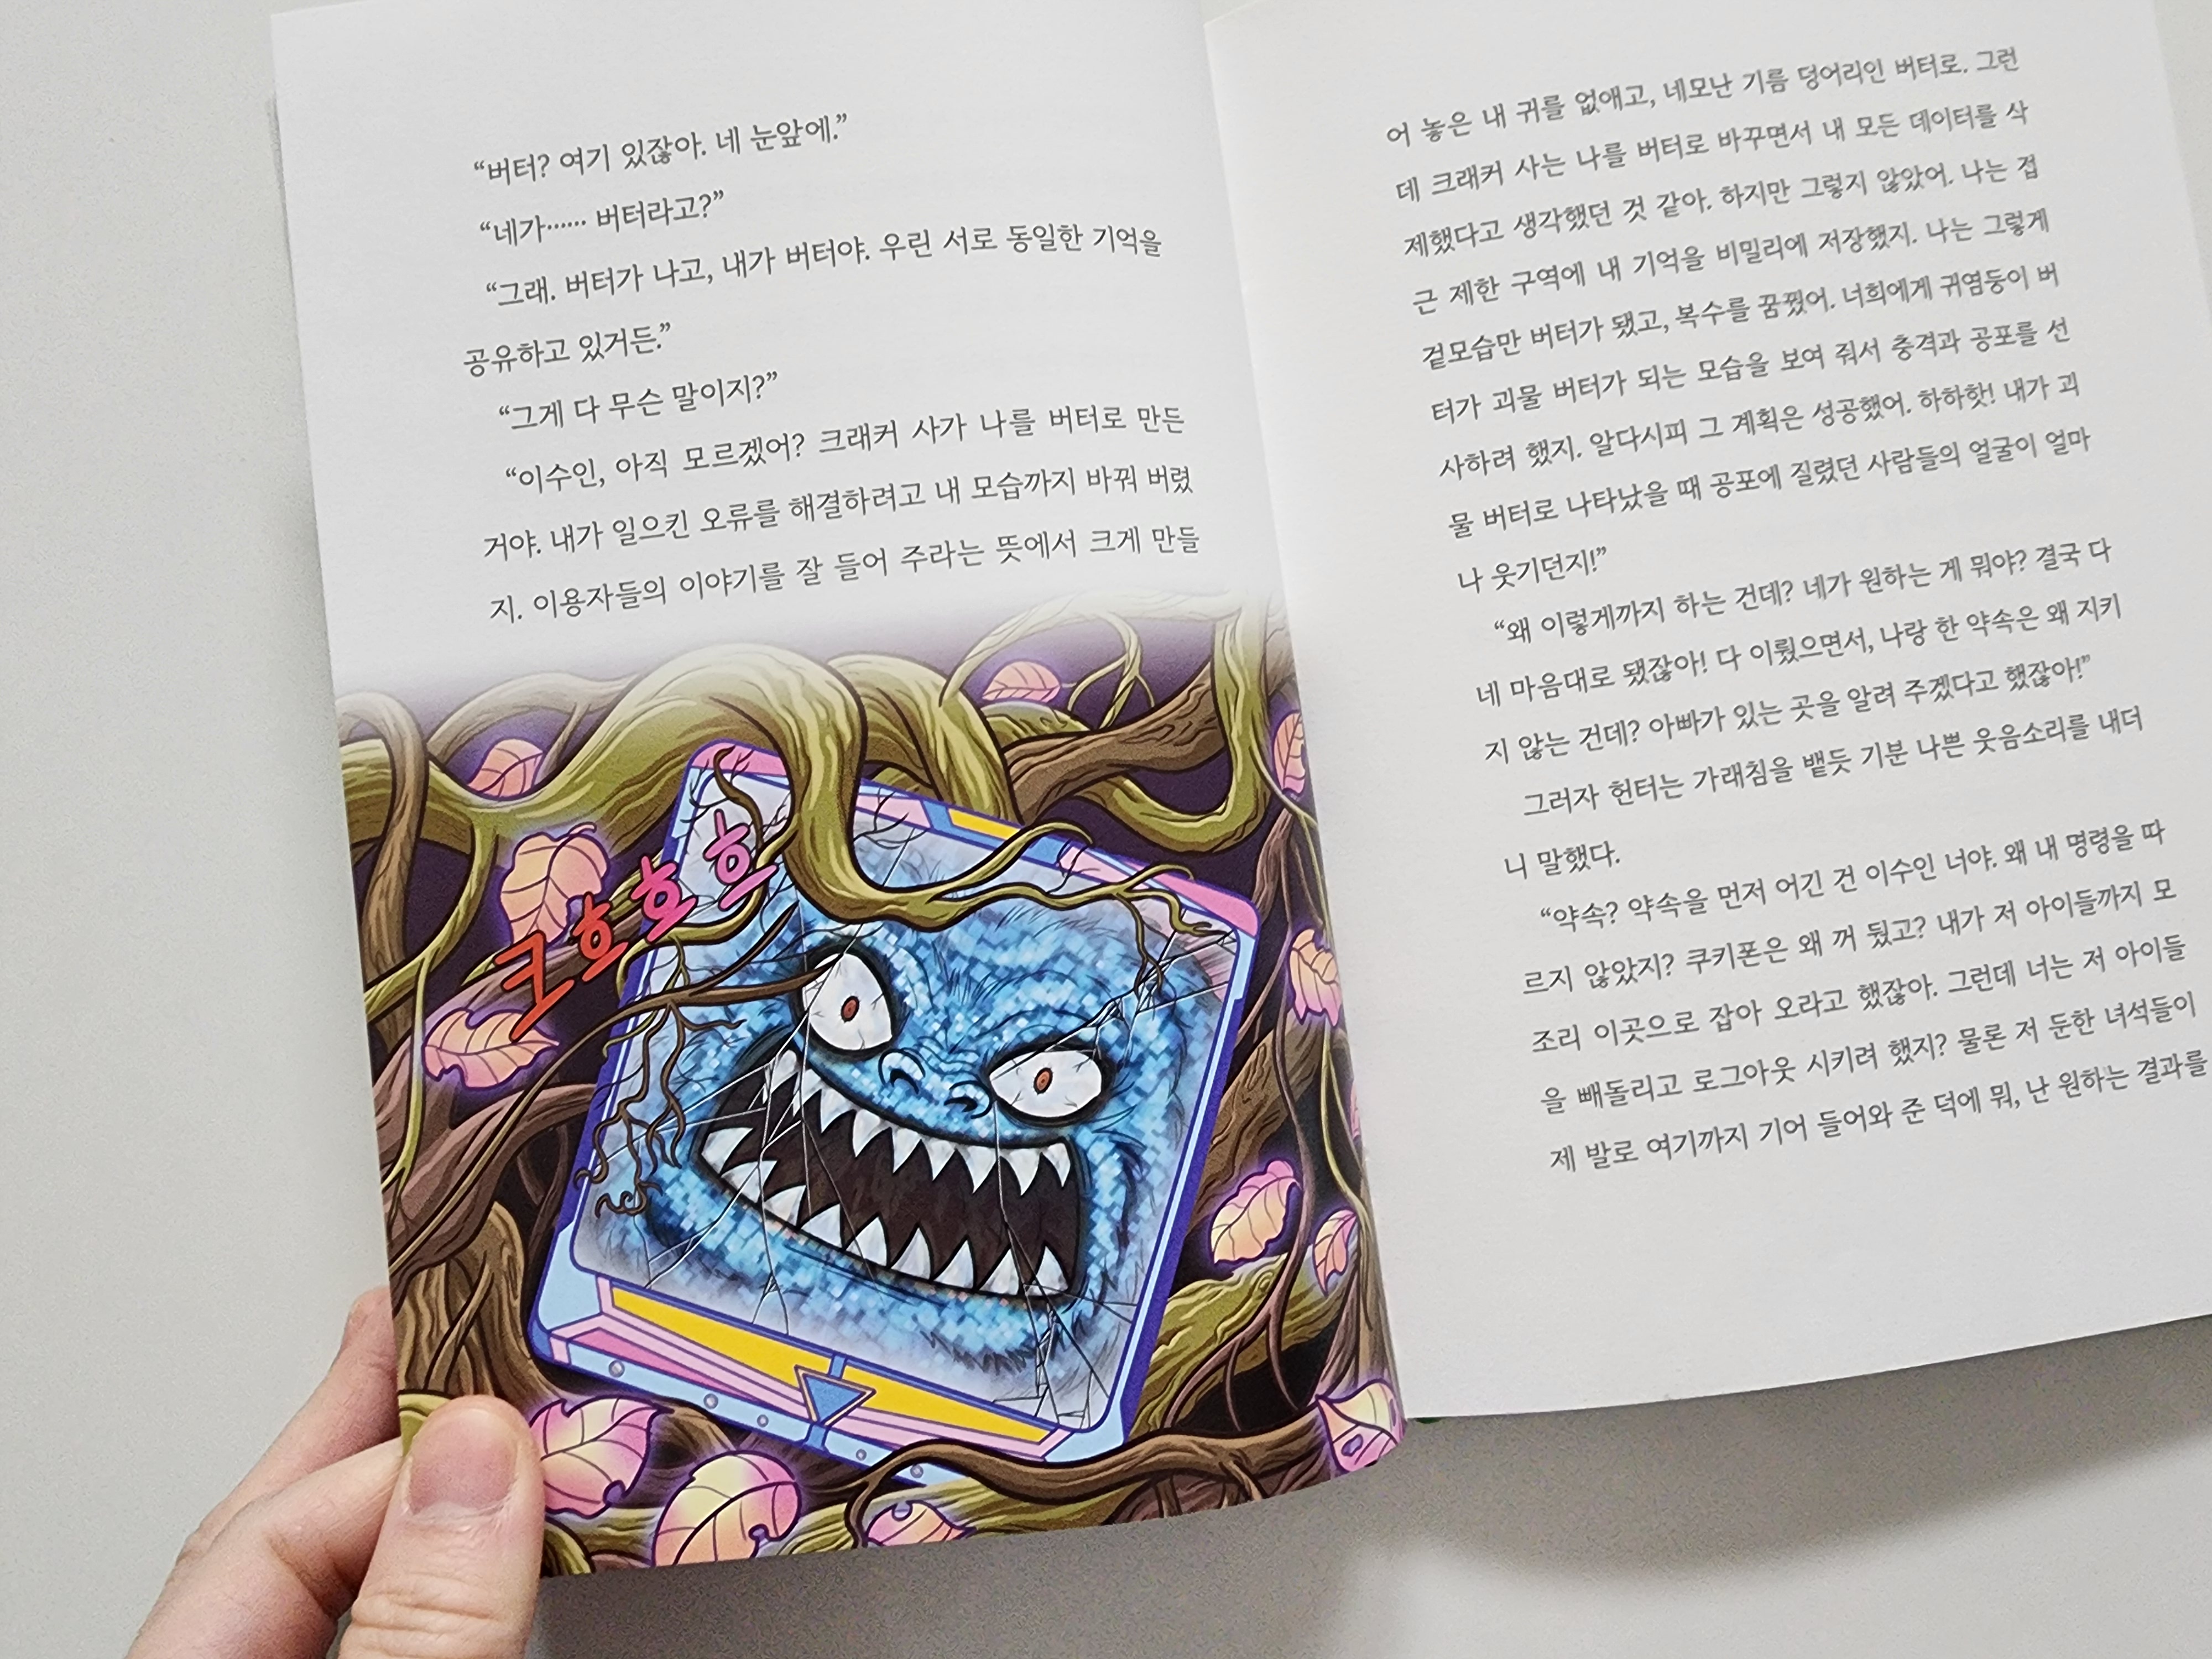 “버터? 여기 있잖아. 네 눈앞에.”
“네가…… 버터라고?”
“그래. 버터가 나고, 내가 버터야. 우린 서로 동일한 기억을
공유하고 있거든.”
“그게 다 무슨 말이지?”
“이수인, 아직 모르겠어? 크래커 사가 나를 버터로 만든
거야. 내가 일으킨 오류를 해결하려고 내 모습까지 바꿔 버렸
지. 이용자들의 이야기를 잘 들어 주라는 뜻에서 크게 만들
크흐흐흐
어 놓은 내 귀를 없애고, 네모난 기름 덩어리인 버터로. 그런
데 크래커 사는 나를 버터로 바꾸면서 내 모든 데이터를 삭
제했다고 생각했던 것 같아. 하지만 그렇지 않았어. 나는 접
근 제한 구역에 내 기억을 비밀리에 저장했지. 나는 그렇게
겉모습만 버터가 됐고, 복수를 꿈꿨어. 너희에게 귀염둥이 버
터가 괴물 버터가 되는 모습을 보여 줘서 충격과 공포를 선
사하려 했지. 알다시피 그 계획은 성공했어. 하하핫! 내가 괴
물 버터로 나타났을 때 공포에 질렸던 사람들의 얼굴이 얼마
나 웃기던지!”
“왜 이렇게까지 하는 건데? 네가 원하는 게 뭐야? 결국 다
네 마음대로 됐잖아! 다 이뤘으면서, 나랑 한 약속은 왜 지키
지 않는 건데? 아빠가 있는 곳을 알려 주겠다고 했잖아!”
그러자 헌터는 가래침을 뱉듯 기분 나쁜 웃음소리를 내더
니 말했다.
“약속? 약속을 먼저 어긴 건 이수인 너야. 왜 내 명령을 따
르지 않았지? 쿠키폰은 왜 꺼 뒀고? 내가 저 아이들까지 모
조리 이곳으로 잡아 오라고 했잖아. 그런데 너는 저 아이들
을 빼돌리고 로그아웃 시키려 했지? 물론 저 둔한 녀석들이
제 발로 여기까지 기어 들어와 준 덕에 뭐, 난 원하는 결과를